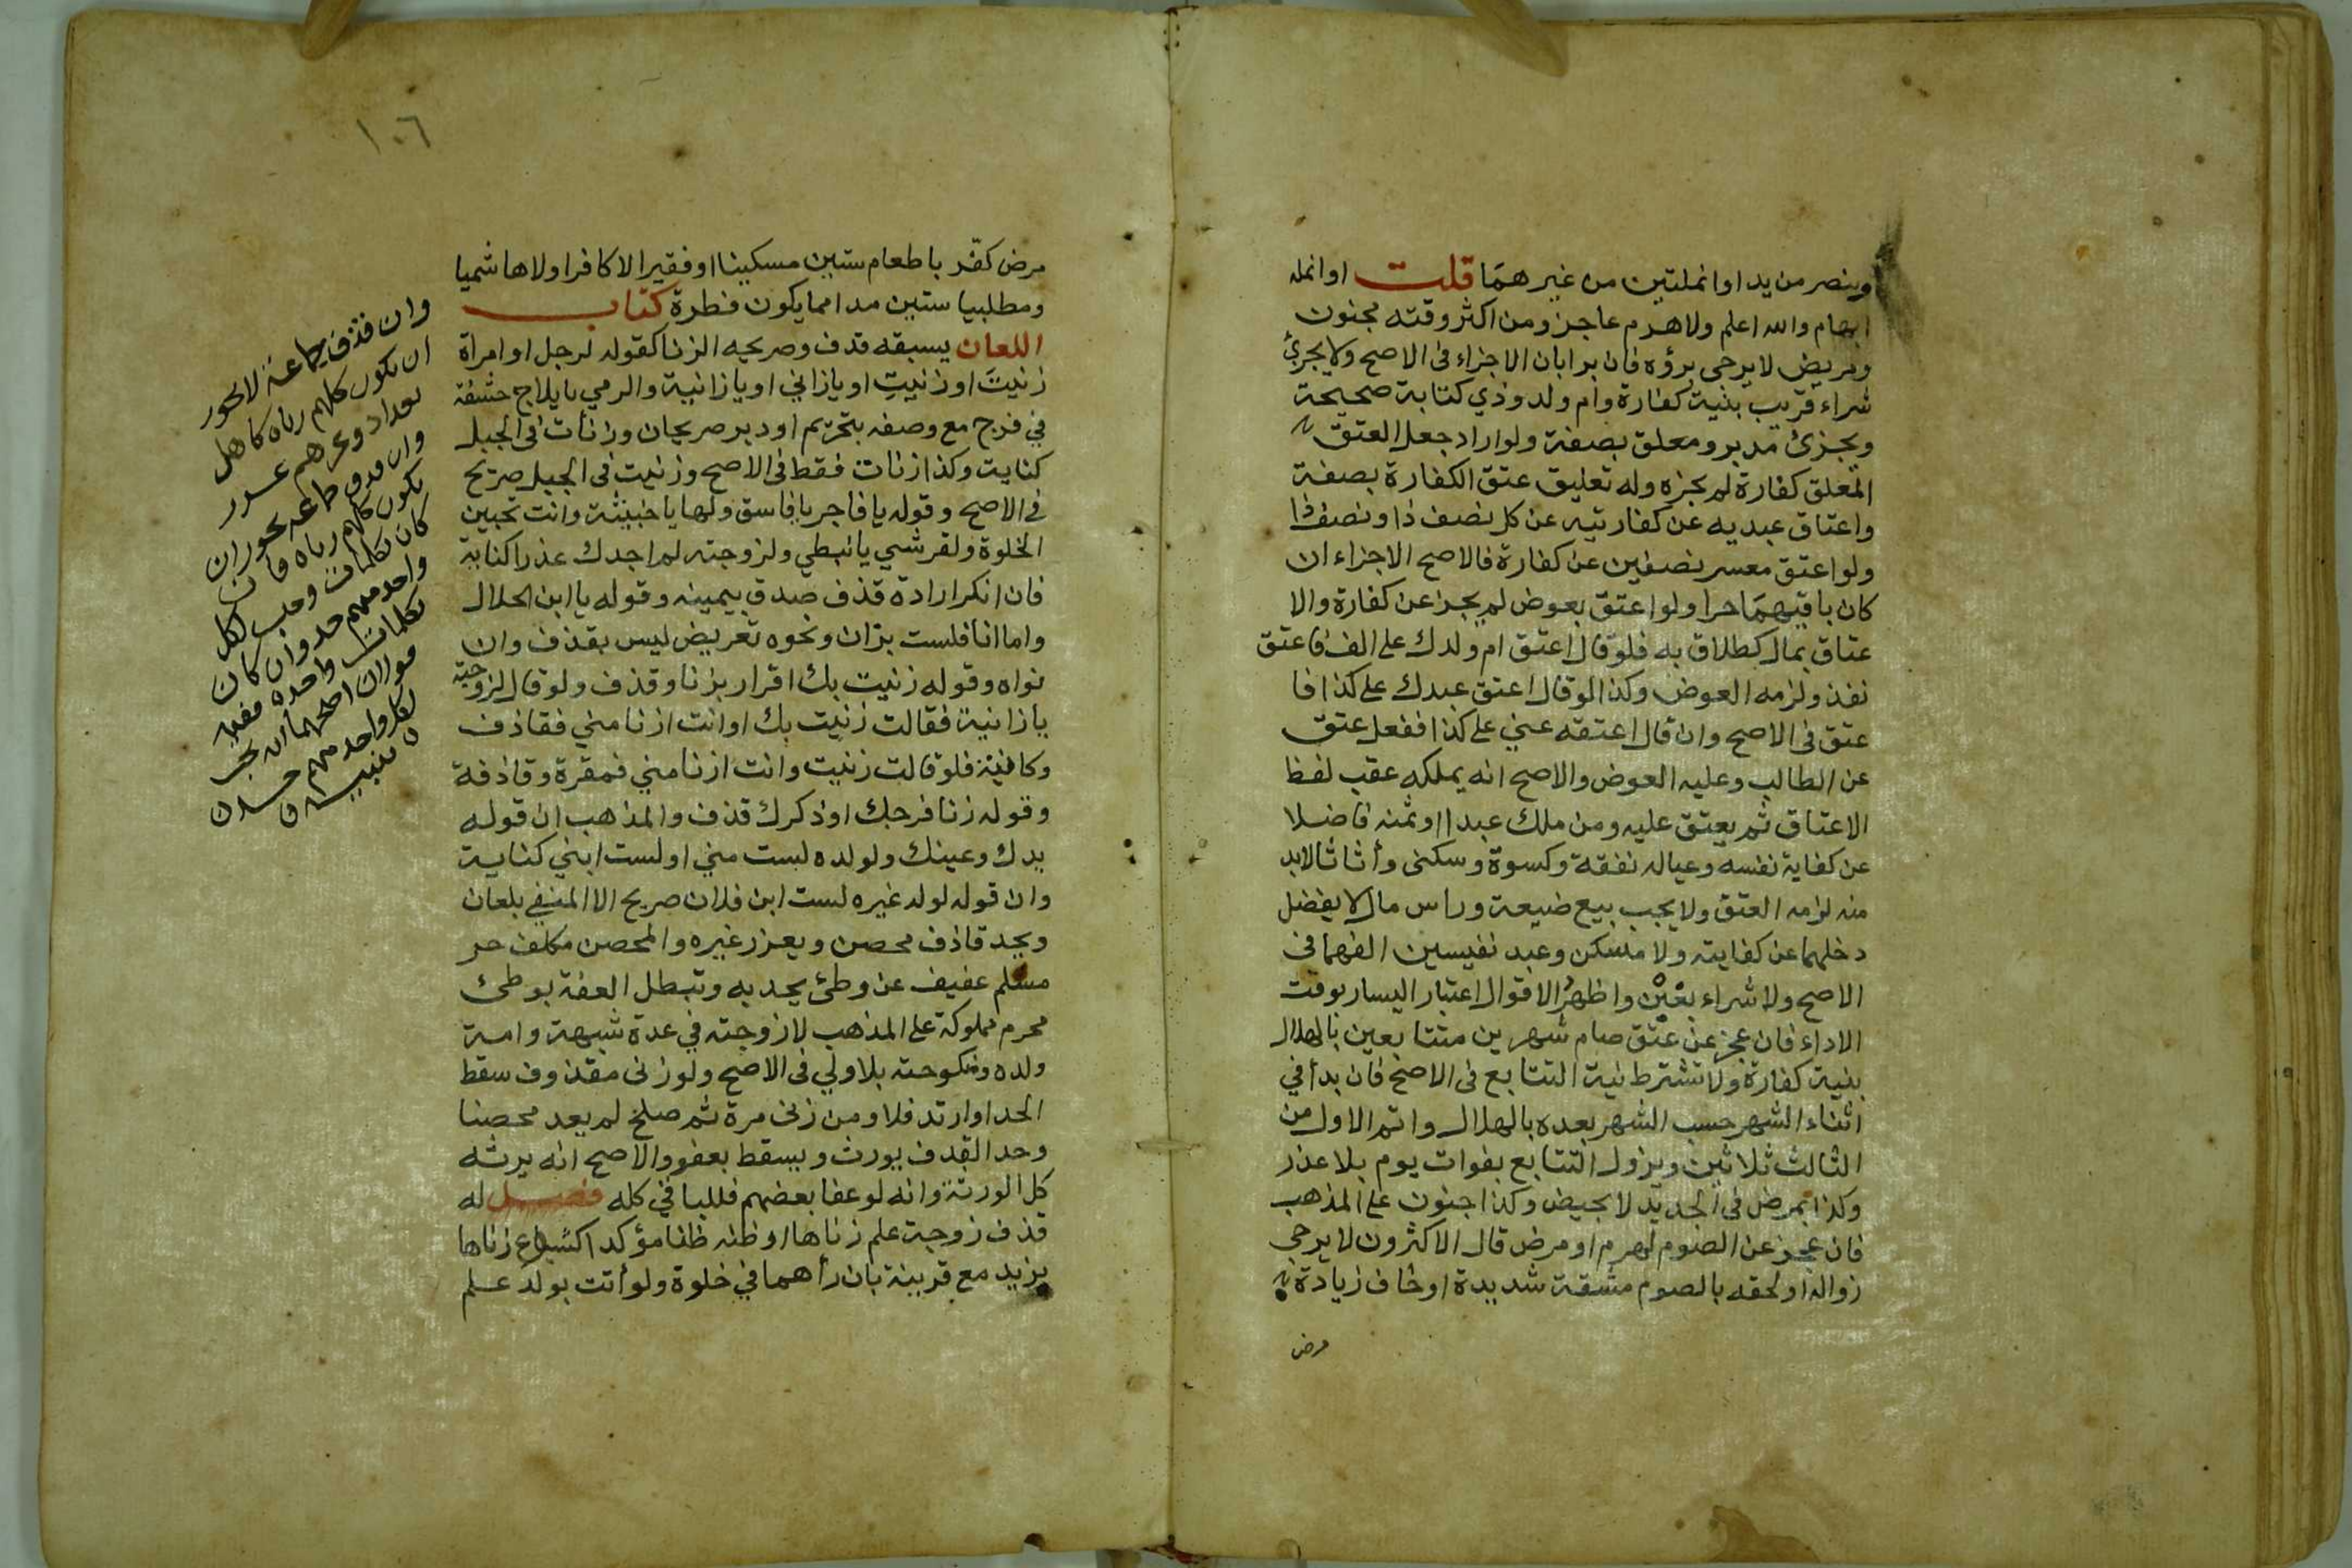 وبنصر من يد او انملتين من غيرهما قلت او انمله
ابهام والله اعلم ولا هرم عاجز ومن اكثر وقته مجنون
ومريض لا يرجى برؤه فان برا بان الاجزاء فى الاصح ولا يجزئ
شراء قريب بنية كفارة وام ولد وذي كتابة صحيحة
ويجزئ مدبر ومعلق بصفة ولو اراد جعل العتق
المعلق كفارة لم يجزه وله تعليق عتق الكفارة بصفة
واعتاق عبديه عن كفارتيه عن كل نصف ذا ونصف ذا
ولو اعتق معسر نصفين عن كفارة فالاصح الاجزاء ان
كان باقيهما حرا ولو اعتق بعوض لم يجز عن كفارة والا
عتاق بمال كطلاق به فلو قال اعتق ام ولدك على الف فاعتق
نفذ ولزمه العوض وكذا لو قال اعتق عبدك على كذا فا
عتق فى الاصح وان قال اعتقه عني على كذا ففعل عتق
عن الطالب وعليه العوض والاصح انه يملكه عقب لفظ
الاعتاق ثم يعتق عليه ومن ملك عبدا او ثمنه فاضلا
عن كفاية نفسه وعياله نفقة وكسوة وسكنى وأثاثا لا بد
منه لزمه العتق ولا يجب بيع ضيعة وراس مال لا يفضل
دخلهما عن كفايته ولا مسكن وعبد نفيسين الفهما فى
الاصح ولا شراء بغبن واظهر الاقوال اعتبار اليسار بوقت
الاداء فان عجز عن عتق صام شهرين متتابعين بالهلال
بنية كفارة ولا تشترط نية التتابع فى الاصح فان بدأ في
اثناء الشهر حسب الشهر بعده بالهلال واتم الاول من
الثالث ثلاثين ويزول التتابع بفوات يوم بلا عذر
وكذا بمرض فى الجديد لا بحيض وكذا جنون على المذهب
فان عجز عن الصوم لهرم او مرض قال الاكثرون لا يرجى
زواله او لحقه بالصوم مشقة شديدة او خاف زيادة
مرض
١٠٦
مرض كفر باطعام ستين مسكينا او فقيرا لا كافرا ولا هاشميا
ومطلبيا ستين مدا مما يكون فطرة كتاب
اللعان يسبقه قذف وصريحه الزنا كقوله لرجل او امراة
زنيتَ او زنيتِ او يازاني او يازانية والرمي بايلاج حشفة
في فرج مع وصفه بتحريم او دبر صريحان وزنات فى الجبل
كناية وكذا زنات فقط فى الاصح وزنيت فى الجبل صريح
فى الاصح وقوله يا فاجر يا فاسق ولها يا خبيثة وانت تحبين
الخلوة ولقرشي يا نبطي ولزوجته لم اجدك عذرا كناية
فان انكر ارادة قذف صدق بيمينه وقوله يا ابن الحلال
واما انا فلست بزان ونحوه تعريض ليس بقذف وان
نواه وقوله زنيت بك اقرار بزنا وقذف ولو قال لزوجته
يا زانية فقالت زنيت بك او انت ازنا مني فقاذف
وكانية فلو قالت زنيت وانت ازنا مني فمقرة وقاذفة
وقوله زنا فرجك او ذكرك قذف والمذهب ان قوله
يدك وعينك ولولده لست مني او لست ابني كناية
وان قوله لولد غيره لست ابن فلان صريح الا المنفي بلعان
ويحد قاذف محصن ويعزر غيره والمحصن مكلف حر
مسلم عفيف عن وطئ يحد به وتبطل العفة بوطئ
محرم مملوكة على المذهب لا زوجته في عدة شبهة وامة
ولده ومنكوحته بلا ولي فى الاصح ولو زنى مقذوف سقط
الحد او ارتد فلا ومن زنى مرة ثم صلح لم يعد محصنا
وحد القذف يورث ويسقط بعفو والاصح انه يرثه
كل الورثة وانه لو عفا بعضهم فللباقي كله فصل له
قذف زوجة علم زناها او ظنه ظنا مؤكدا كشياع زناها
بزيد مع قرينة بان رأهما في خلوة ولو أتت بولد علم
وان قذف جماعة لا يجوز
ان يكون كلهم زناه كاهل
بغداد وغيرهم عزر
وان قذف جماعة يجوز ان
يكون كلهم زناه فان
كان بكلمات وجب لكل
واحد منهم حد وان كان
بكلمات واحده ففيه
قولان اصحهما انه يجب
لكل واحد منهم حد